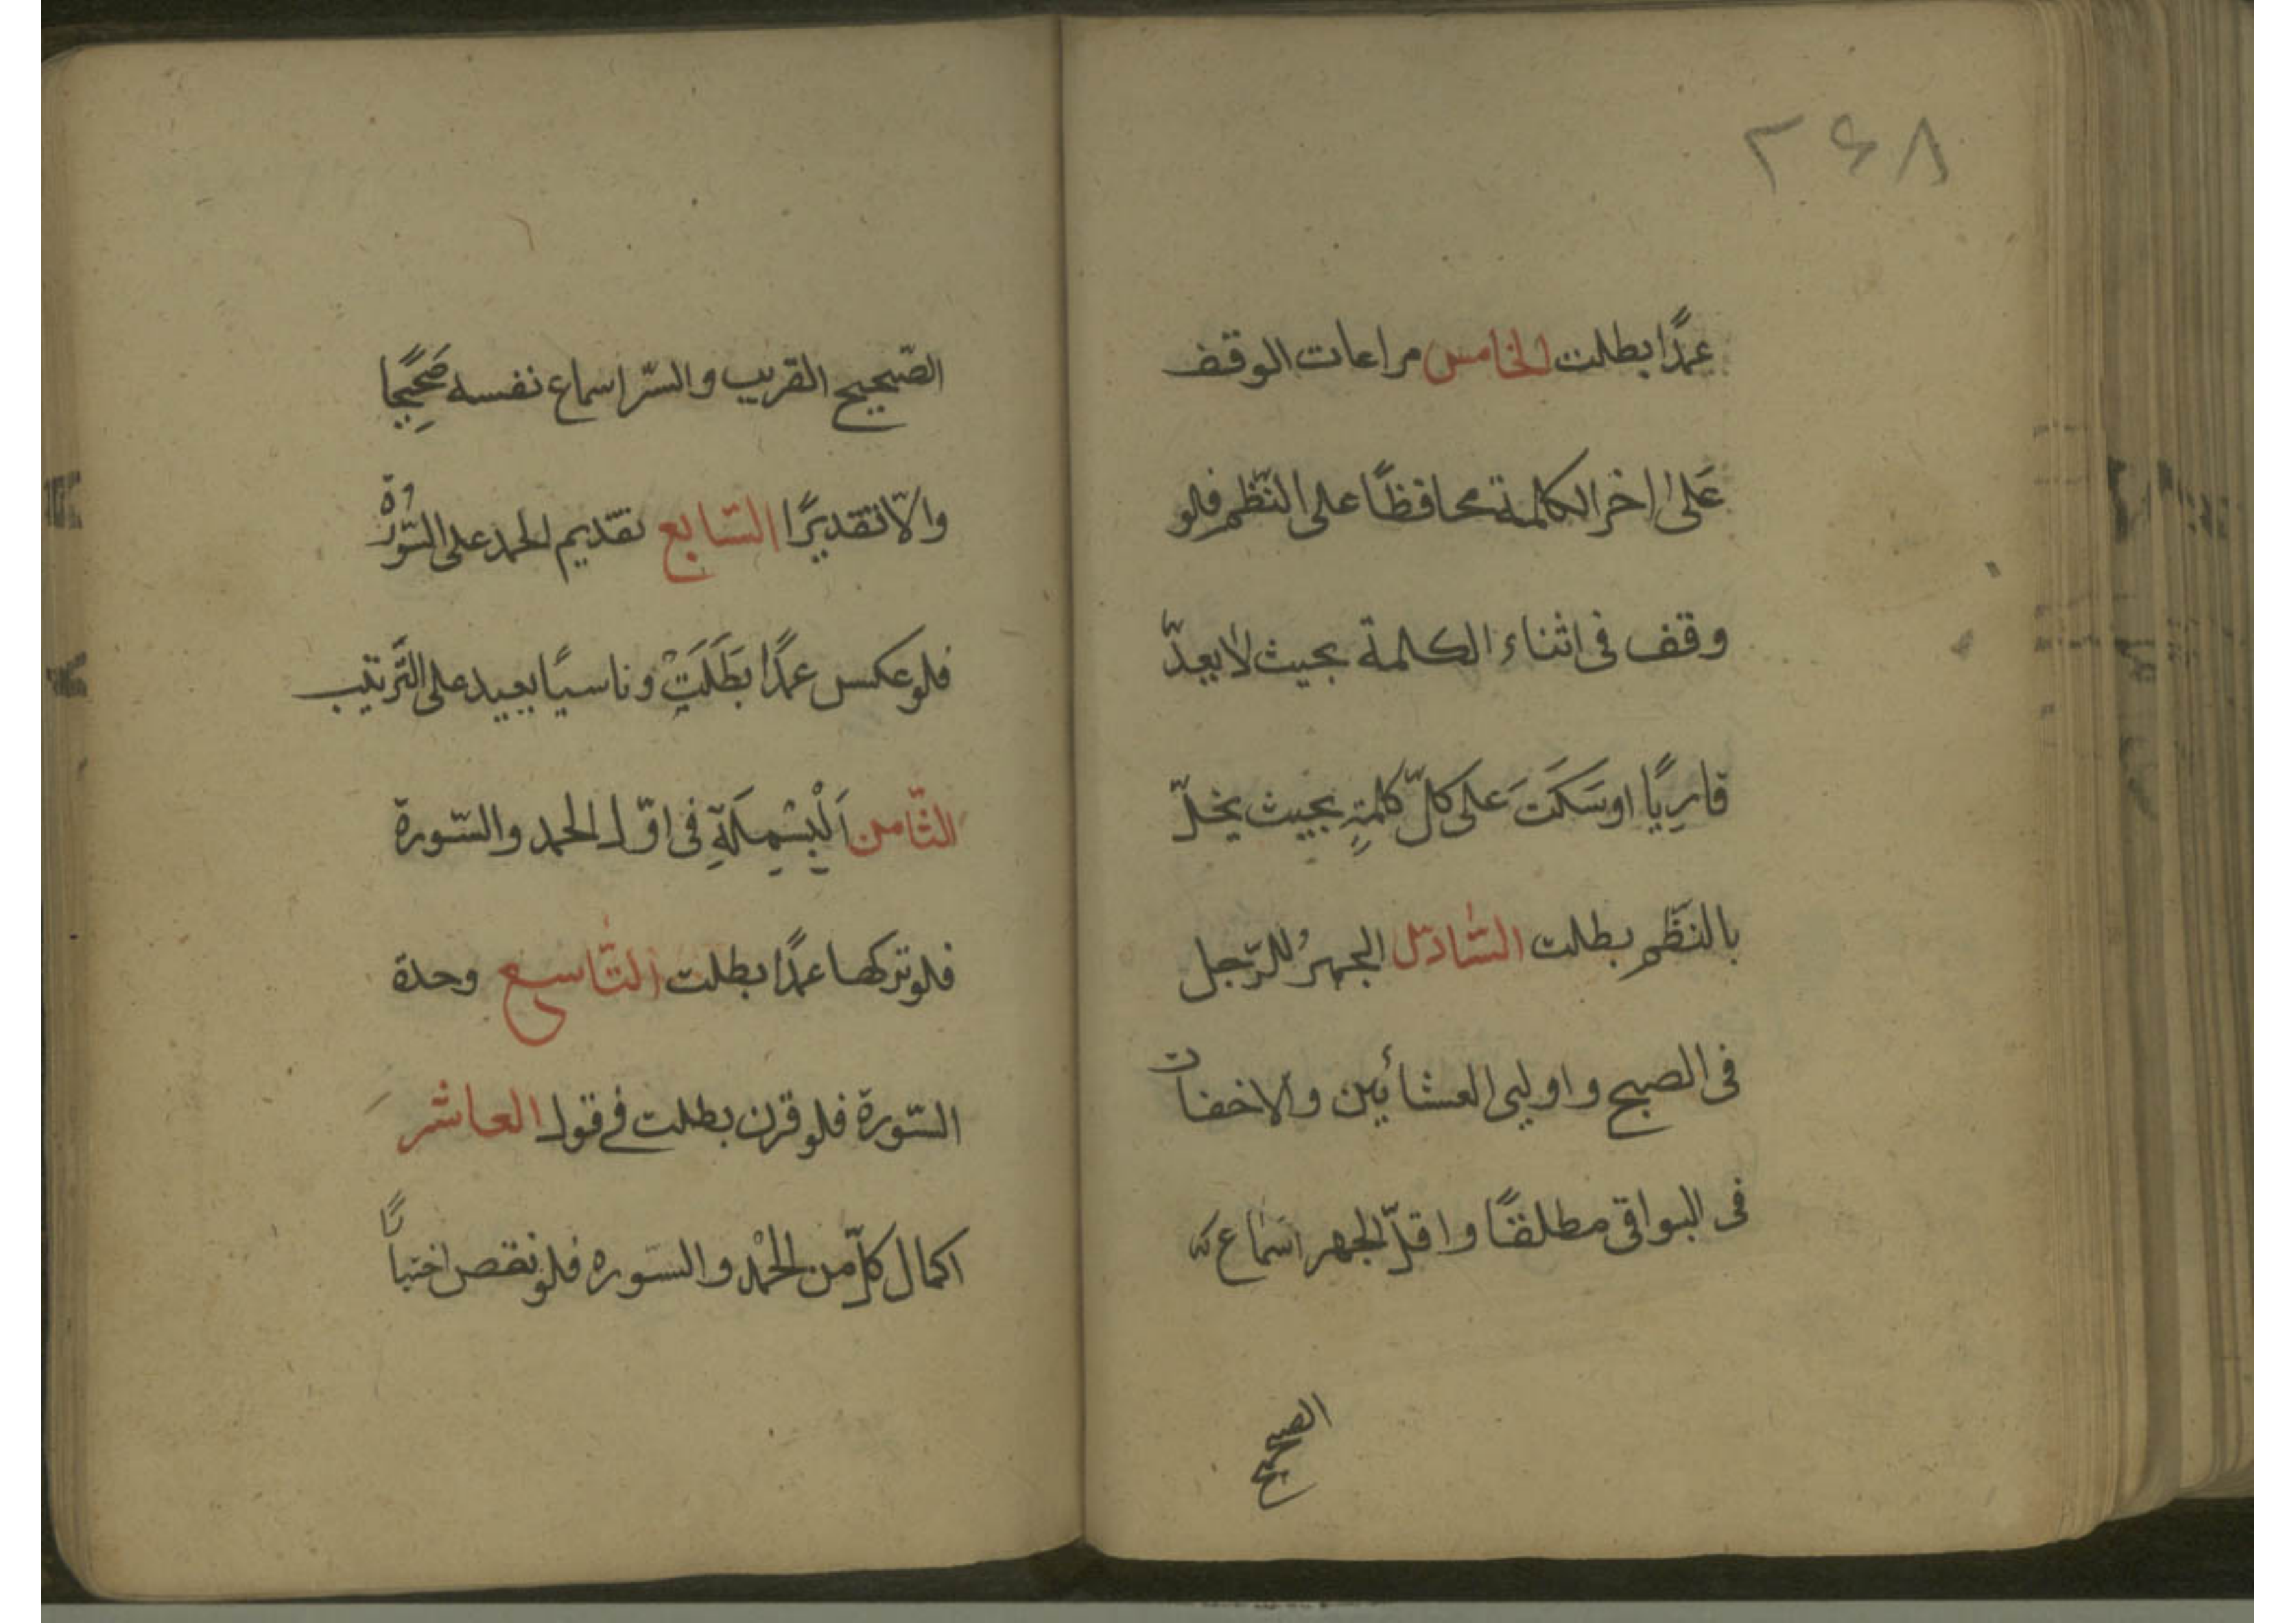 ۲۶۸
عمدًا بطلت الخامس مراعات الوقف
عَلىٰ اخر الكلمة محافظًا على النّظم فلو
وقف فى اثناء الكلمة بحيث لا يعدّ
قارِيًا او سَكَتَ على كلّ كلمةٍ بحيث يخلّ
بالنّظم بطلت السّادس الجهرُ للرّجل
فى الصبح و اوليى العشائين والاخفات
فى البواقى مطلقًا و اقلّ الجهر اسماع
الصحيح
الصّحيح القريب و السّر اسماع نفسه صَحِيحًا
والّا تقديرًا السّابع تقديم الحمد على السّورة
فلو عكس عمدًا بَطَلَتْ و ناسيًا يعيد على التَّرتيب
الثّامن اَلْبَسْمِلَةِ فى اوّل الحمد والسّورة
فلو تركها عمدًا بطلت التّاسع وحدة
السّورة فلو قرن بطلت فى قول العاشر
اكمال كلّ من الحمْد و السّوره فلو نقص اختيارًا